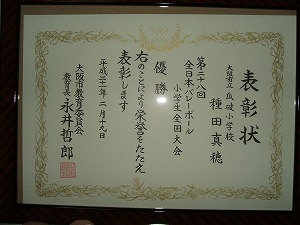 表彰状
大阪市立瓜破小学校
種田真穂
第二十八回
全日本バレーボール
小学生全国大会
優勝
右のことにより栄誉をたたえ
表彰します
平成二十一年二月十九日
大阪市教育委員会
教育長 永井哲郎